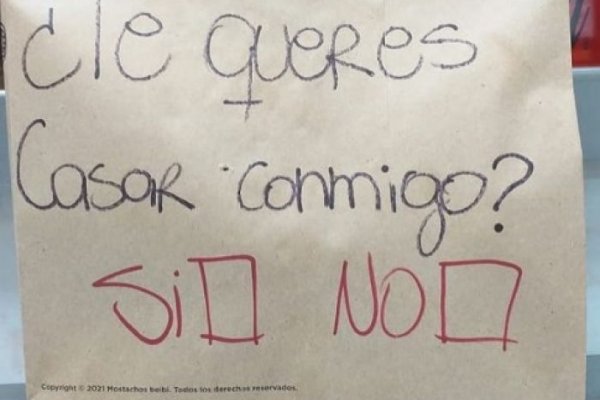 ¿Te queres
Casar conmigo?
Si □ NO □
Copyright © 2021 Mostachos beibi. Todos los derechos reservados.